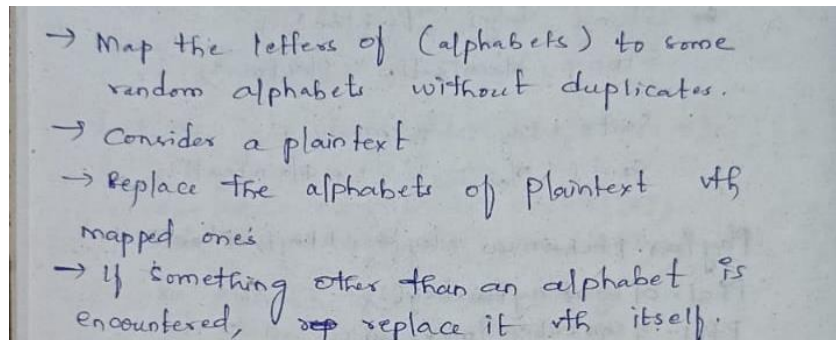 → Map the letters of (alphabets) to some
random alphabets without duplicates.
→ Consider a plaintext
→ Replace the alphabets of plaintext wth
mapped one's
→ If something other than an alphabet is
encountered, replace it wth itself.